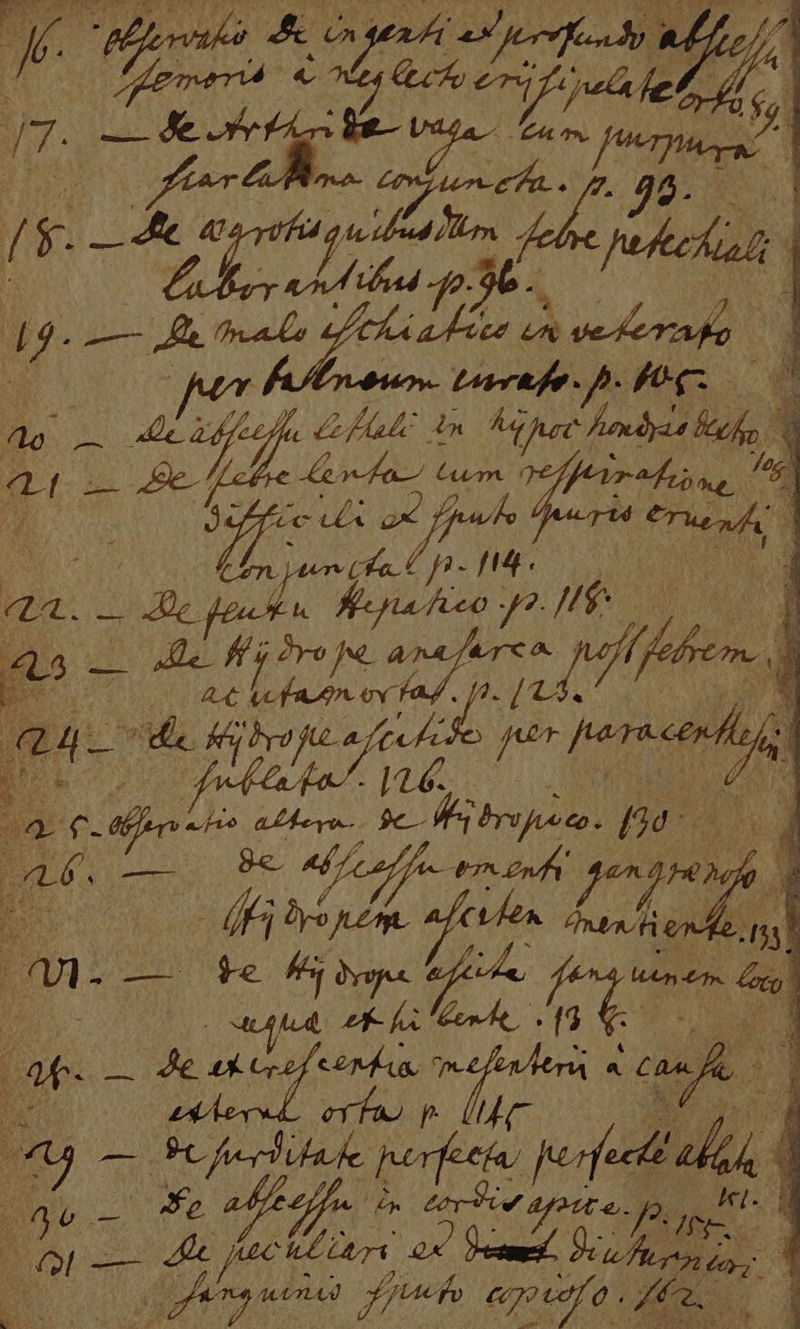 16. Observatio de ingenti et profundo abscessu
femoris a neglecto erysipelate orto 89.
17. — de Arthride vaga cum purpura
scarlatina conjuncta. p. 93.
18. — de aegrotis quibusdam febre petechiali
laborantibus p. 96.
19. — De malo ischiatico inveterato
per balneum curato. p. 105.
20 — de abscessu lethali in hypochondrio
21 — De febre lenta cum respiratione
difficili et sputo puris cruenti
conjuncta p. 114.
22. — De fluxu Hepatico p. 118.
23 — de Hydrope anasarca post febrem
acutam ortas. p. 123.
24 — de Hydrope ascitide per paracenthesin
sublata. 126.
25. Observatio altera de Hydropico. 130
26. — de abscessu omenti gangrenoso
Hydropem asciten mentiente. 133
27. — de Hydrope ascite sanguinem loco
aquae exhibente. 13
28. — de excrescentia mesenterii a causa
externa orta p. 145
29 — de surditate perfecta perfecte
30 — De abscessu in cordis apice. p.
31 — De peculiari ex diuturniori
sanguinis sputo copioso. 162.